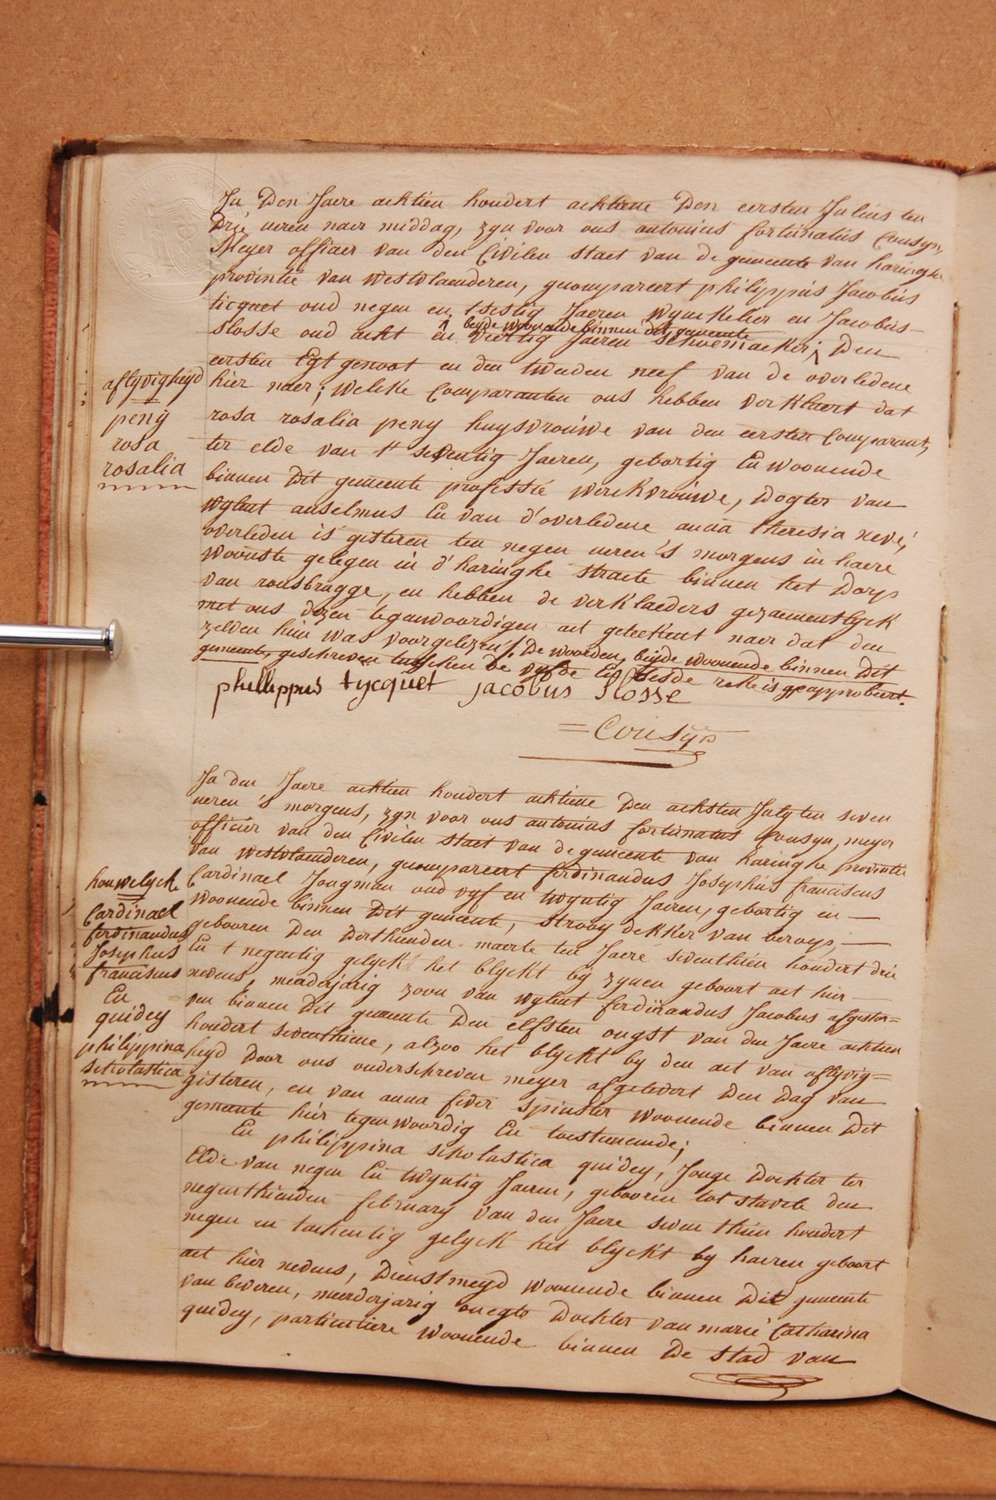 In Den Jaere achtien hondert achtiene Den eersten Julius ten
Drie uren naer middag, zyn voor ons antonius fortunatus Cousyn,
Meyer officier van den Civilen staet van de gemeente van haringhe
provintie van westvlaenderen, gecompareert philippus Jacobus
ticquet oud negen en tsestig Jaeren wynckelier en Jacobus
beyde woonende binnen dit gemeente
slosse oud acht en viertig Jaeren schoemaeker; Den
eersten Egt genoot en den tweeden neef van de overledene
hier naer; welcke Comparanten ons hebben verklaert dat
rosa rosalia peny huysvrouwe van den eersten Comparant,
ter elde van t' seventig Jaeren, gebortig En woonende
binnen Dit gemeente professie werkvrouwe, dogter van
wylent anselmus En van d'overledene anna theresia neve;
overleden is gisteren ten negen uren 's morgens in haere
woonste gelegen in d' haringhe straete binnen het Dorp
van rousbrugge, en hebben de verklaeders gezaementlyck
met ons dezen tegenwoordigen act geteekent naer dat den
zelden hun was voorgelezen; De woorden, beyde woonende binnen Dit
gemeente, geschreven tusschen de vyfde En sesde reke is geapprobeert.
phillippus tycquet jacobus slosse
= Cousyn
aflyvigheyd
peny
rosa
rosalia
In den Jaere achtien hondert achtiene Den achsten July ten seven
uren 's morgens, zyn voor ons antonius fortunatus Cousyn, meyer
officier van den Civilen staet van de gemeente van haringhe provintie
van westvlaenderen, gecompareert ferdinandus Josephus franciscus
Cardinael Jongman oud vyf en twyntig Jaeren, gebortig en
woonende binnen Dit gemeente, strooy dekker van beroep,
gebooren Den Derthienden maerte ten Jaere seventhien hondert drie
En t negentig gelyck het blyckt by zynen geboort act hier
nevens, meerderjarig zoon van wylent ferdinandus Jacobus afgestor=
ven binnen Dit gemeente Den elfsten ougst van den Jaere achtien
hondert seventhiene, alzoo het blyckt by den act van aflyvig=
heyd door ons onderschreven meyer afgelevert Den Dag van
gisteren, en van anna fever spinster woonende binnen Dit
gemeente hier tegenwoordig En toestemende;
En philippina scholastica quidey, Jonge Dochter ter
Elde van negen En twyntig Jaeren, gebooren tot stavele den
negenthienden february van den Jaere seventhien hondert
negen en tachentig gelyck het blyckt by haeren geboort
act hier nevens, Dienstmeyd woonende binnen Dit gemeente
van beveren, meerderjarig onegte Dochter van marie Catharina
quidey, particuliere woonende binnen De stad van
houwelyck
Cardinael
ferdinandus
Josephus
franciscus
En
quidey
philippina
scholastica